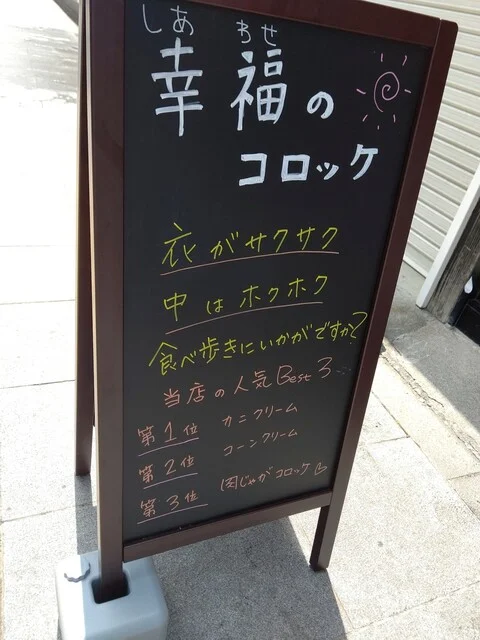 しあわせ
幸福の
コロッケ
衣がサクサク
中はホクホク
食べ歩きにいかがですか?
当店の人気Best3...
第1位 カニクリーム
第2位 コーンクリーム
第3位 肉じゃがコロッケ